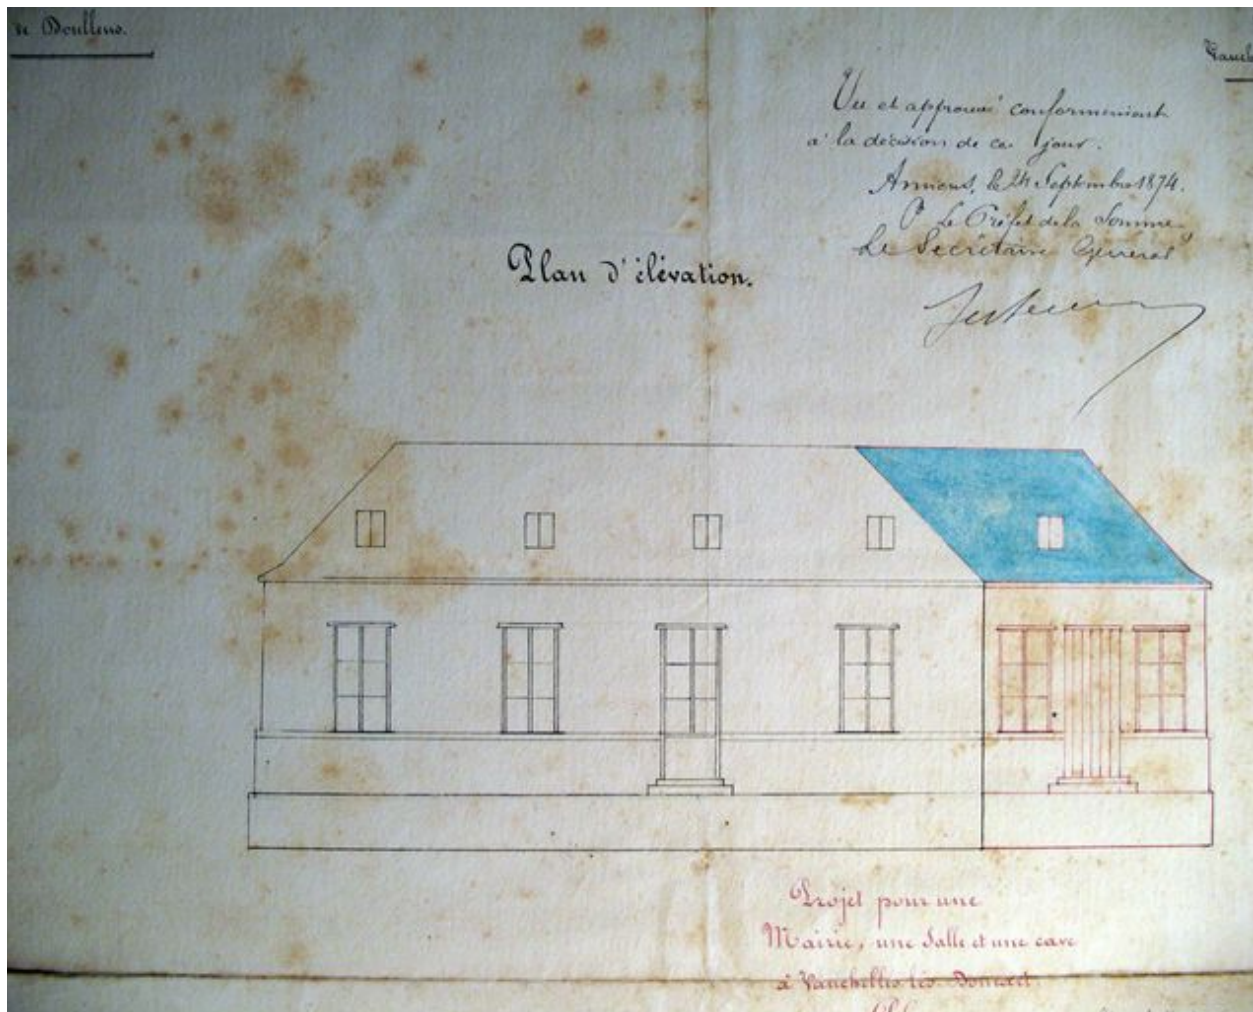 de Doullens.
Vauch
Vu et approuvé conformément
à la décision de ce jour.
Amiens, le 24 Septembre 1874.
Le Préfet de la Somme
Le Secrétaire Général
Plan d'élévation.
Projet pour une
Mairie, une Salle et une cave
à Vauchelles-les-Domart